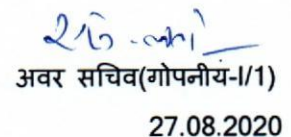 अवर सचिव(गोपनीय-I/1)
27.08.2020